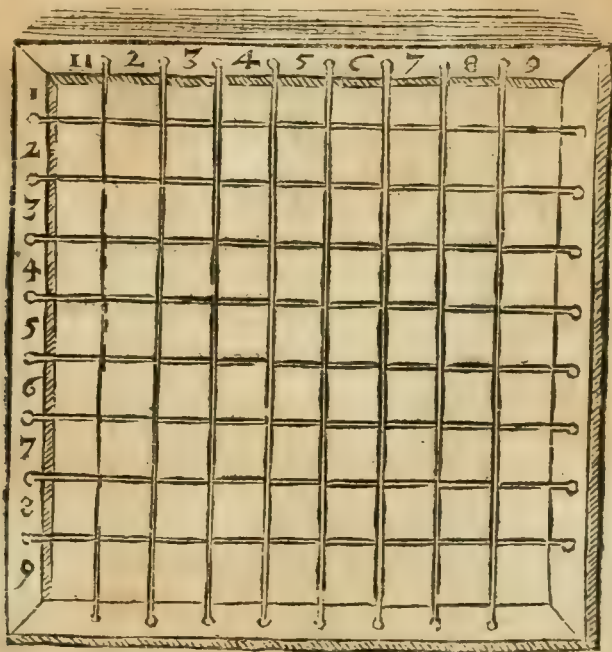 11 2 3 4 5 6 7 8 9
1
2
3
4
5
6
7
8
9